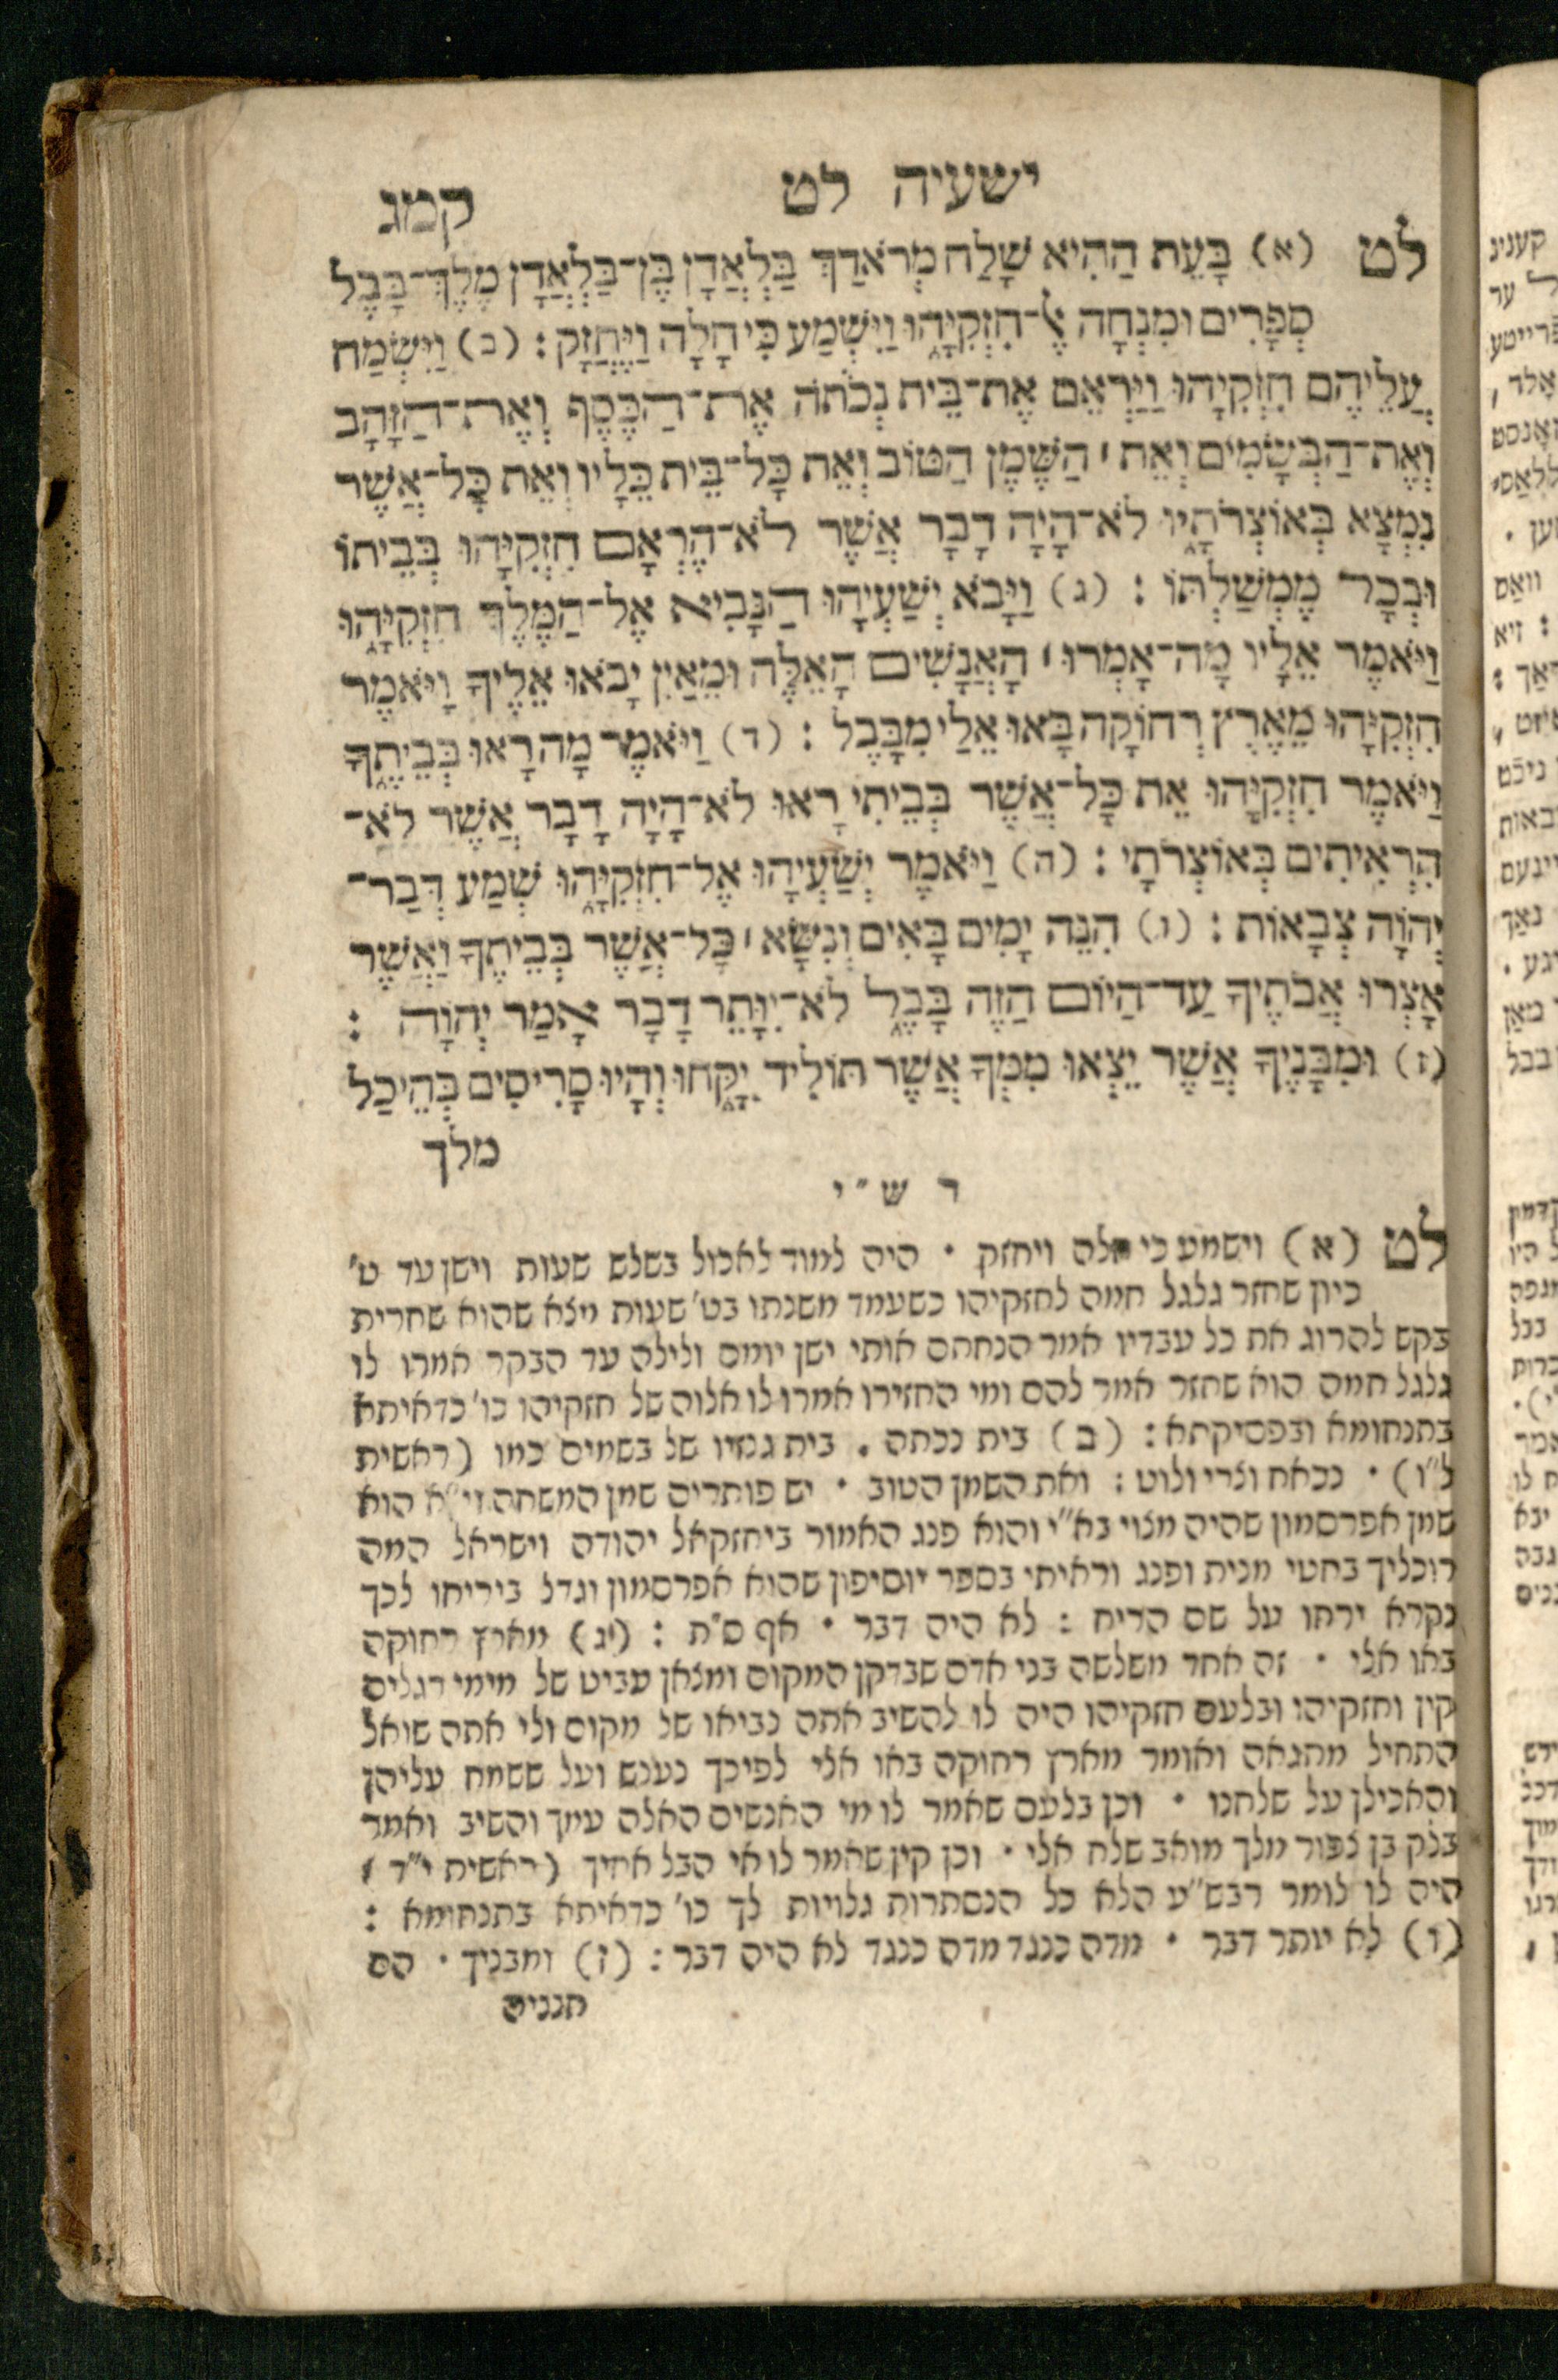 ישעיה לט קמג
לט (א) בָּעֵת הַהִיא שָׁלַח מְרֹאדַךְ בַּלְאֲדָן בֶּן־בַּלְאֲדָן מֶלֶךְ־בָּבֶל
סְפָרִים וּמִנְחָה אֶל־חִזְקִיָּהוּ וַיִּשְׁמַע כִּי חָלָה וַיֶּחֱזָק : (ב) וַיִּשְׂמַח
עֲלֵיהֶם חִזְקִיָּהוּ וַיַּרְאֵם אֶת־בֵּית נְכֹתֹה אֶת־הַכֶּסֶף וְאֶת־הַזָּהָב
וְאֶת־הַבְּשָׂמִים וְאֵת ׀ הַשֶּׁמֶן הַטּוֹב וְאֵת כָּל־בֵּית כֵּלָיו וְאֵת כָּל־אֲשֶׁר
נִמְצָא בְּאוֹצְרֹתָיו לֹא־הָיָה דָבָר אֲשֶׁר לֹא־הֶרְאָם חִזְקִיָּהוּ בְּבֵיתוֹ
וּבְכָל־ מֶמְשַׁלְתּוֹ : (ג) וַיָּבֹא יְשַׁעְיָהוּ הַנָּבִיא אֶל־הַמֶּלֶךְ חִזְקִיָּהוּ
וַיֹּאמֶר אֵלָיו מָה־אָמְרוּ ׀ הָאֲנָשִׁים הָאֵלֶּה וּמֵאַיִן יָבֹאוּ אֵלֶיךָ וַיֹּאמֶר
חִזְקִיָּהוּ מֵאֶרֶץ רְחוֹקָה בָּאוּ אֵלַי מִבָּבֶל : (ד) וַיֹּאמֶר מָה רָאוּ בְּבֵיתֶךָ
וַיֹּאמֶר חִזְקִיָּהוּ אֵת כָּל־אֲשֶׁר בְּבֵיתִי רָאוּ לֹא־הָיָה דָבָר אֲשֶׁר לֹא־
הִרְאִיתִים בְּאוֹצְרֹתָי : (ה) וַיֹּאמֶר יְשַׁעְיָהוּ אֶל־חִזְקִיָּהוּ שְׁמַע דְּבַר־
יְהֹוָה צְבָאוֹת : (ו) הִנֵּה יָמִים בָּאִים וְנִשָּׂא ׀ כָּל־אֲשֶׁר בְּבֵיתֶךָ וַאֲשֶׁר
אָצְרוּ אֲבֹתֶיךָ עַד־הַיּוֹם הַזֶּה בָּבֶל לֹא־יִוָּתֵר דָּבָר אָמַר יְהֹוָה :
(ז) וּמִבָּנֶיךָ אֲשֶׁר יֵצְאוּ מִמְּךָ אֲשֶׁר תּוֹלִיד יִקָּחוּ וְהָיוּ סָרִיסִים בְּהֵיכַל
מלך
ר ש״י
לט (א) וישמע כי חלה ויחזק • היה למוד לאכול בשלש שעות וישן עד ט׳
כיון שחזר גלגל חמה לחזקיהו כשעמד משנתו בט׳ שעות מצא שהוא שחרית
בקש להרוג את כל עבדיו אמר הנחתם אותי ישן יומם ולילה עד הבקר אמרו לו
גלגל חמה הוא שחזר אמר להם ומי החזירו אמרו לו אלוה של חזקיהו כו׳ כדאיתא
בתנחומא ובפסיקתא : (ב) בית נכתה . בית גנזיו של בשמים כמו (ראשית
ל״ו) • נכאת וצרי ולוט : ואת השמן הטוב • יש פותריה שמן המשחה וי״א הוא
שמן אפרסמון שהיה מצוי בא״י והוא פנג האמור ביחזקאל יהודה וישראל המה
רוכליך בחטי מנית ופנג וראיתי בספר יוסיפון שהוא אפרסמון וגדל ביריחו לכך
נקרא ירחו על שם הריח : לא היה דבר • אף ס״ת : (יג) מארץ רחוקה
באו אלי • זה אחד משלשה בני אדם שבדקן המקום ומצאן עביט של מימי רגלים
קין וחזקיהו ובלעם חזקיהו היה לו להשיב אתה נביאו של מקום ולי אתה שואל
התחיל מתגאה ואומר מארץ רחוקה באו אלי לפיכך נענש ועל ששמח עליהן
והאכילן על שלחנו • וכן בלעם שאמר לו מי האנשים האלה עמך והשיב ואמר
בלק בן צפור מלך מואב שלח אלי • וכן קין שאמר לו אי הבל אחיך (ראשית י״ד)
היה לו לומר רבש״ע הלא כל הנסתרות גלויות לך כו׳ כדאיתא בתנחומא :
(ו) לא יותר דבר • מדה כנגד מדה כנגד לא היה דבר : (ז) ומבניך • הם
חנניה